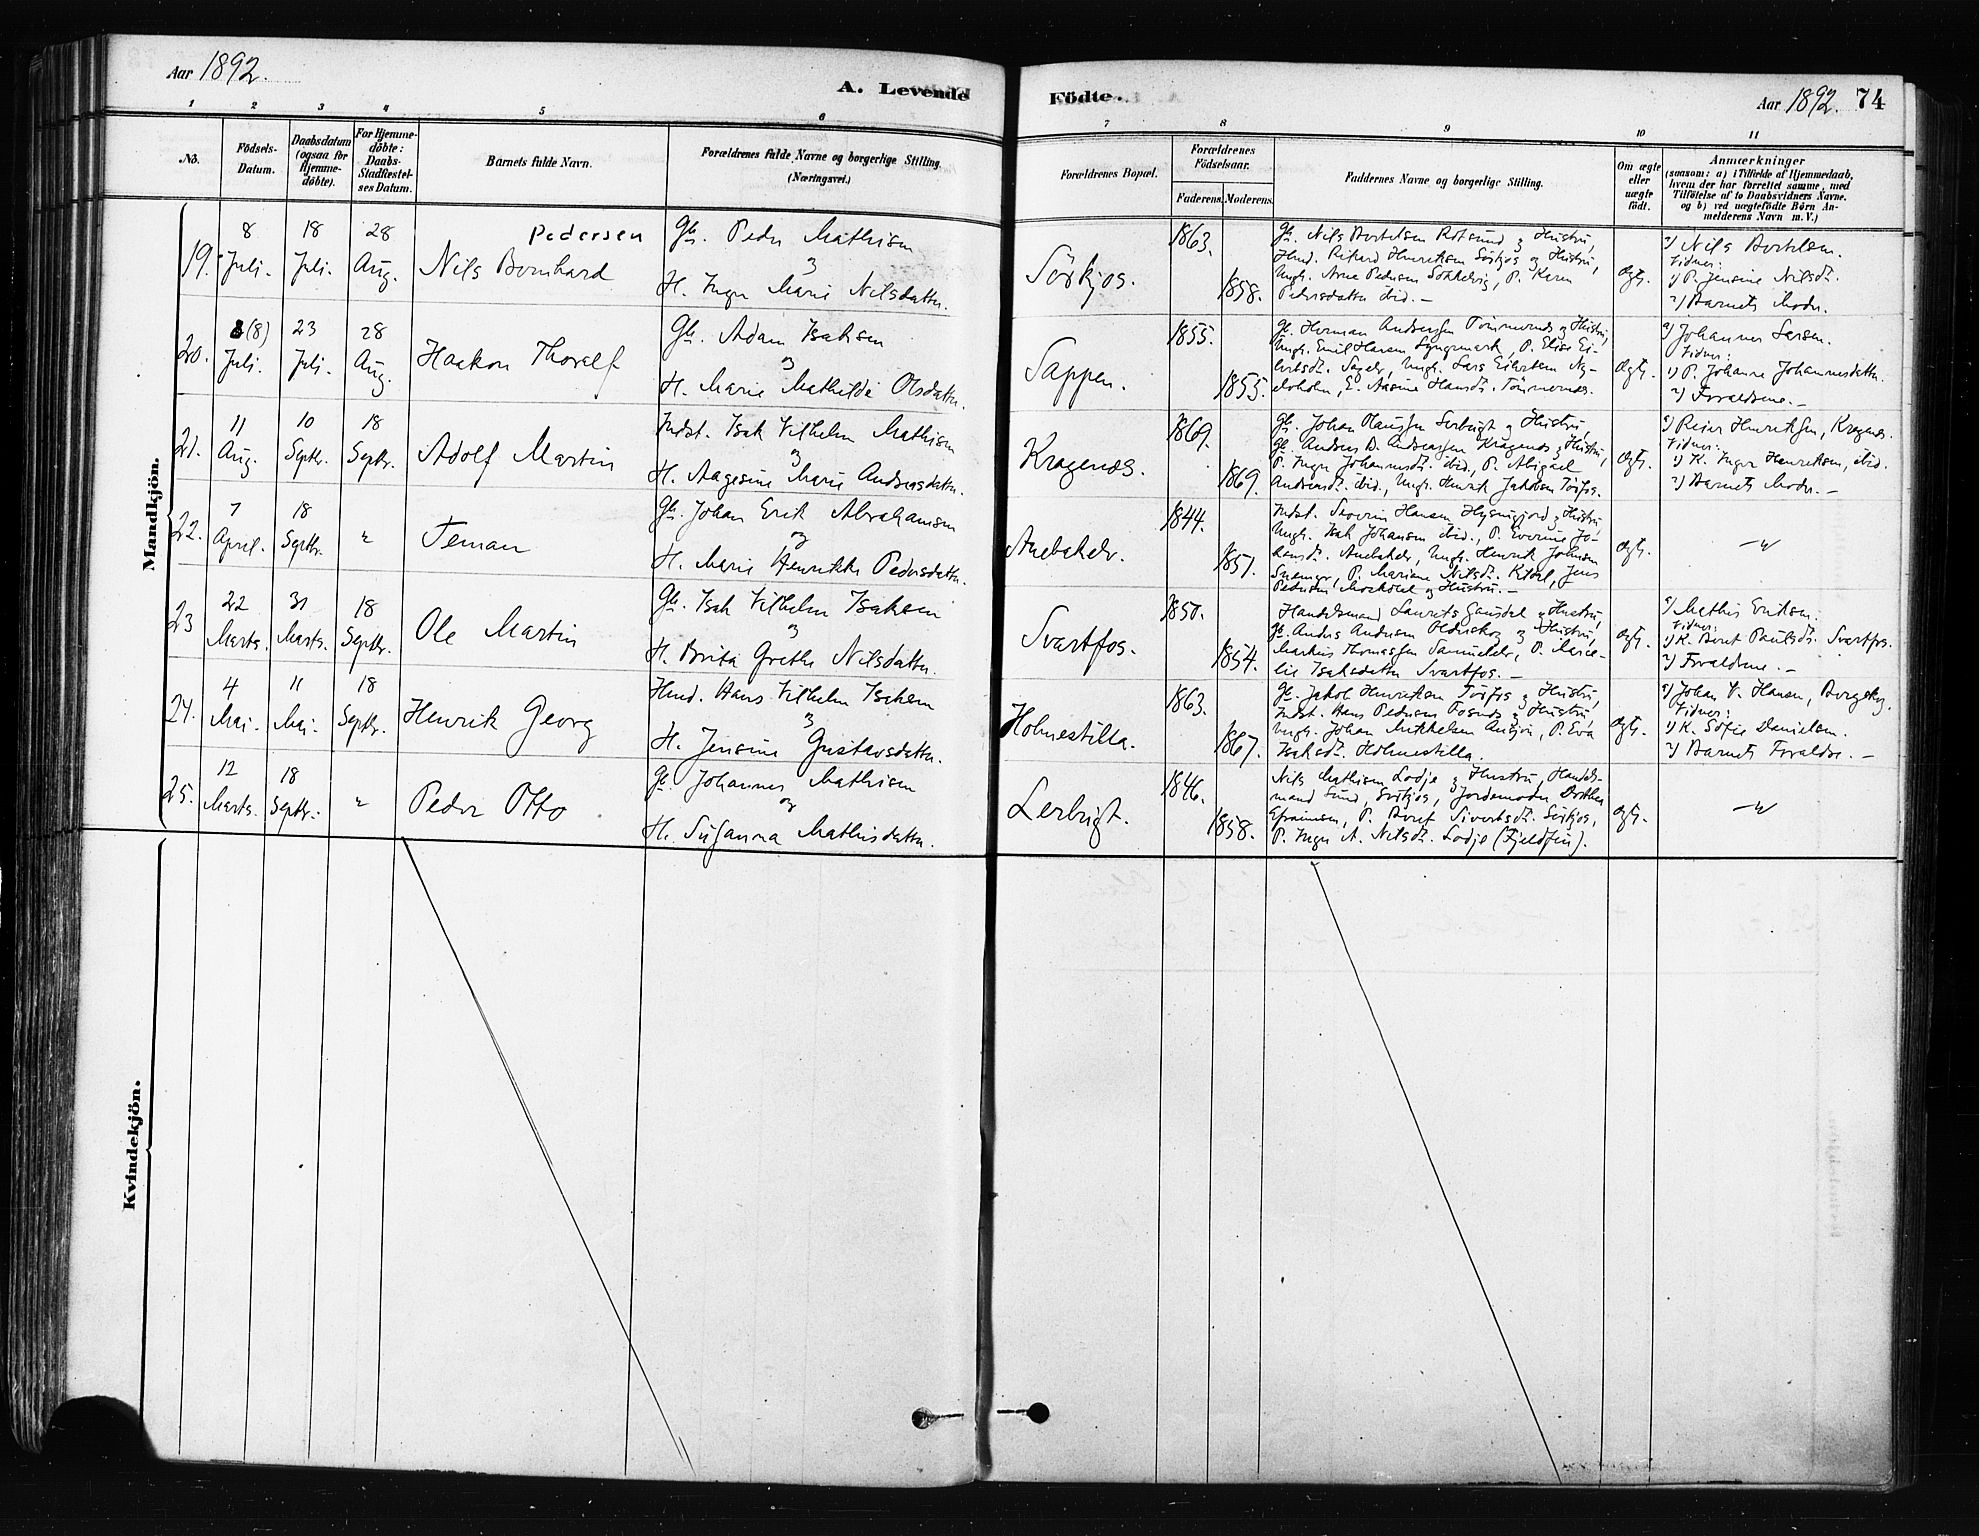 Aar 1892.
A. Levende
Födte.
Aar 1892. 74
1 2 3 4 5 6
7 8 9 10 11
No.
Födsels-
Datum.
Daabsdatum
(ogsaa for
Hjemme-
döbte).
For Hjemme-
döbte:
Daabs-
Stadfæstel-
ses Datum.
Barnets fulde Navn.
Forældrenes fulde Navne og borgerlige Stilling.
(Næringsvei.)
Forældrenes Bopæl.
Forældrenes
Födselsaar.
Faderens. Moderens.
Faddernes Navne og borgerlige Stilling.
Om ægte
eller
uægte
födt.
Anmærkninger
(saasom: a) i Tilfælde af Hjemmedaab,
hvem der har forrettet samme, med
Tilföielse af to Daabsvidners Navne.
og b) ved uægtefödte Börn An-
melderens Navn m. V.)
Mandkjön.
19.
8
Juli.
18
Juli.
28
Aug.
Pedersen
Nils Bernhard
Gb. Peder Mathisen
og
H. Inger Marie Nilsdatter.
Sörkjos.
1863.
1858.
Gb. Nils Bertelsen Rotsund og Hustru,
Hmd. Rikard Henriksen Sörkjos og Hustru,
Ungk. Arne Pedersen Sokkelvig, P. Karen
Pedersdatter ibid. –
Ægt.
a) Nils Bertelsen.
Vidner:
1) P. Jensine Nilsdt.
2) Barnets Moder.
20.
8 (8)
Juli.
23
Juli.
28
Aug.
Haakon Thoralf
Gb. Adam Isaksen
og
H. Marie Mathilde Olsdatter.
Sappen.
1855.
1855.
Ungk. Emil Hansen Lyngmark, P. Elise Ei-
Ægt.
a) Johannes Larsen.
Vidner:
1) P. Johanne Johannesdatter.
2) Forældrene. –
21.
11
Aug.
10
Septbr.
18
Septbr.
Adolf Martin
Indst. Isak Vilhelm Mathisen
og
H. Aagesine Marie Andersdatter.
Kragenæs.
1869.
1869.
Gb. Johan Olaussen Lerbugt og Hustru,
Gb. Anders D. Andersen Kragenæs og Hustru,
P. Inger Johannesdt. ibid., P. Abigael
Andersdt. ibid., Ungk. Henrik Jakobsen Tösfos.
Ægt.
a) Peier Henriksen, Kragenæs.
Vidner:
1) K. Inger Henriksen, ibid.
2) Barnets Moder. –
22.
7
April.
18
Septbr.
"
Teman
Gb. Johan Erik Abrahamsen
og
H. Marie Henrikke Pedersdatter.
1844.
1851.
Ungk. Isak Johansen ibid., P. Everine Jo-
Pedersen og Hustru. –
Ægt.
"
23
22
Marts.
31
Marts.
18
Septbr.
Ole Martin
Gb. Isak Vilhelm Isaksen
og
H. Brita Grethe Nilsdatter.
Svartfos.
1850.
1854.
Handelsmand Laurits Gausdal og Hustru,
Gb. Anders Andersen Olderskog og Hustru,
lie Isaksdatter Svartfos. –
Ægt.
a) Mathis Eriksen.
Vidner:
1) K. Beret Paulsdt. Svartfos.
2) Forældrene. –
24.
4
Mai.
11
Mai.
18
Septbr.
Henrik Georg
Hmd. Hans Vilhelm Isaksen
og
H. Jensine Gustavsdatter.
Holmestilla.
1863.
1867.
Gb. Jakob Henriksen Tösfos og Hustru,
Indst. Hans Pedersen Fosnæs og Hustru,
Isaksdt. Holmestilla.
Ægt.
a) Johan V. Hansen, Borgskog.
Vidner:
1) K. Sofie Danielsen.
2) Barnets Forældre. –
25.
12
Marts.
18
Septbr.
"
Peder Otto
Gb. Johannes Mathisen
og
H. Susanna Mathisdatter.
Lerbugt.
1846.
1858.
Nils Mathisen Lodje og Hustru, Handels-
mand Lund, Sörkjos, Jordemoder Dorthea
Efraimsen, P. Beret Sivertsdt. Sörkjos,
P. Inger A. Nilsdt. Lodje (Fjeldfin).
Ægt.
"
Kvindekjön.